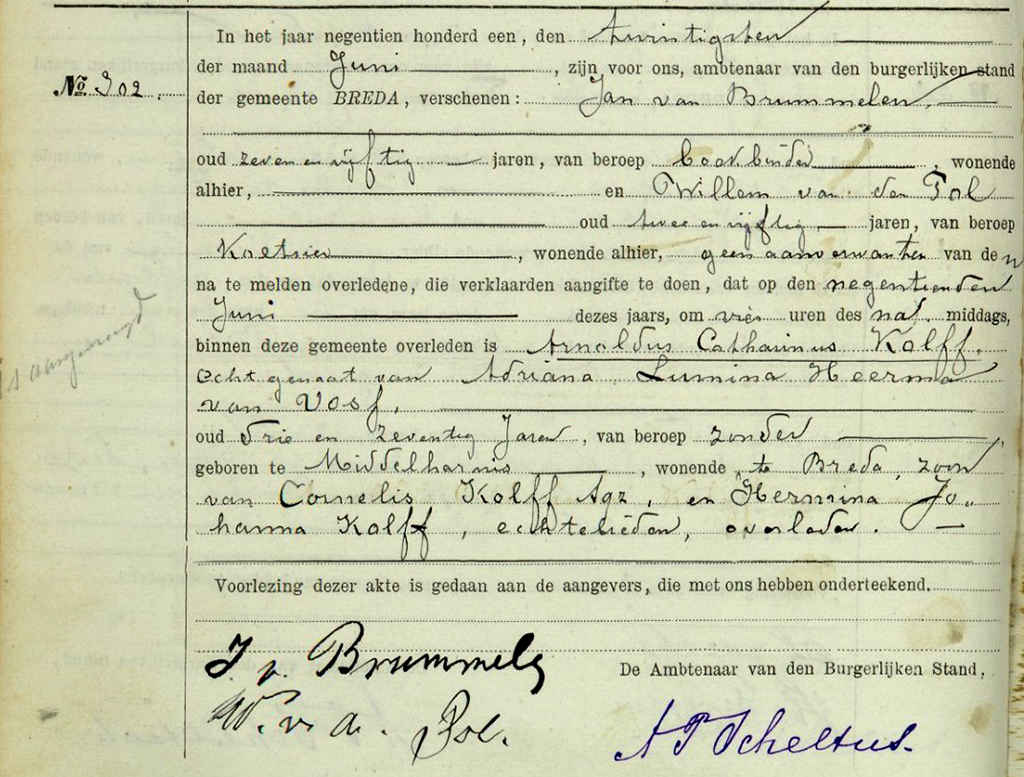 In het jaar negentien honderd een, den twintigsten
der maand Juni, zijn voor ons, ambtenaar van den burgerlijken stand
No. 302.
der gemeente BREDA, verschenen: Jan van Brummelen,
oud zeven en vijftig jaren, van beroep boekbinder, wonende
alhier, en Willem van den Pol
oud twee en vijftig jaren, van beroep
Koetsier, wonende alhier, geen aanverwanten van de n
na te melden overledene, die verklaarden aangifte te doen, dat op den negentienden
Juni dezes jaars, om vier uren des na middags,
binnen deze gemeente overleden is Arnoldus Catharinus Kolff,
echtgenoot van Adriana Lumina Heerma
van Voss,
oud drie en zeventig Jaren, van beroep zonder
geboren te Middelharnis, wonende te Breda, zoon
van Cornelis Kolff Agz, en Hermina Jo-
hanna Kolff, echtelieden, overleden.
Voorlezing dezer akte is gedaan aan de aangevers, die met ons hebben onderteekend.
J. v. Brummele
De Ambtenaar van den Burgerlijken Stand,
W. v. d. Pol.
A P Scheltus.